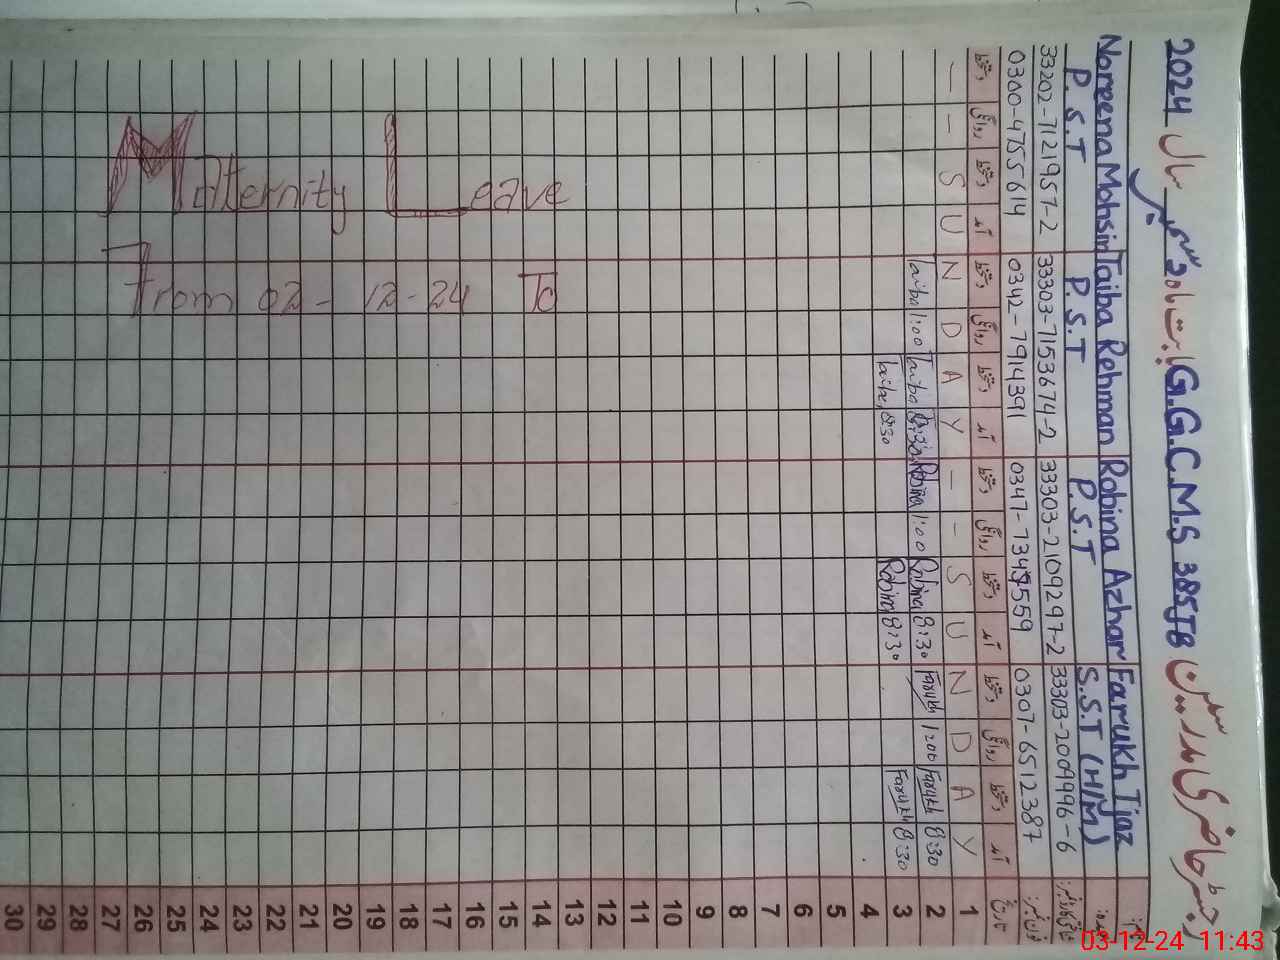 رجسٹر حاضری مدرسین G.G.C.M.S 385JB بابت ماہ دسمبر سال 2024
Farukh Ijaz Robina Azhar Taiba Rehman Noreena Mohsin
S.S.T (H/M) P.S.T P.S.T P.S.T
33303-2009996-6 33303-2109297-2 33303-7153674-2 33202-7121957-2
0307-6512387 0347-7349559 0342-7914391 0300-4755614
تاریخ آمد دستخط روانگی دستخط آمد دستخط روانگی دستخط آمد دستخط روانگی دستخط آمد دستخط روانگی دستخط
1 Y A D N U S - - Y A D N U S - -
2 8:30 Farukh 1:00 Farukh 8:30 Robina 1:00 Robina 8:30 Taiba 1:00 Taiba
3 8:30 Farukh 8:30 Robina 8:30 Taiba
4
5
6
7
8
9
10
11
12
13
14
15
16
17
18
19
20
21
22
23
24
25
26
27
28
29
30
Maternity Leave
From 02-12-24 To
03-12-24 11:43